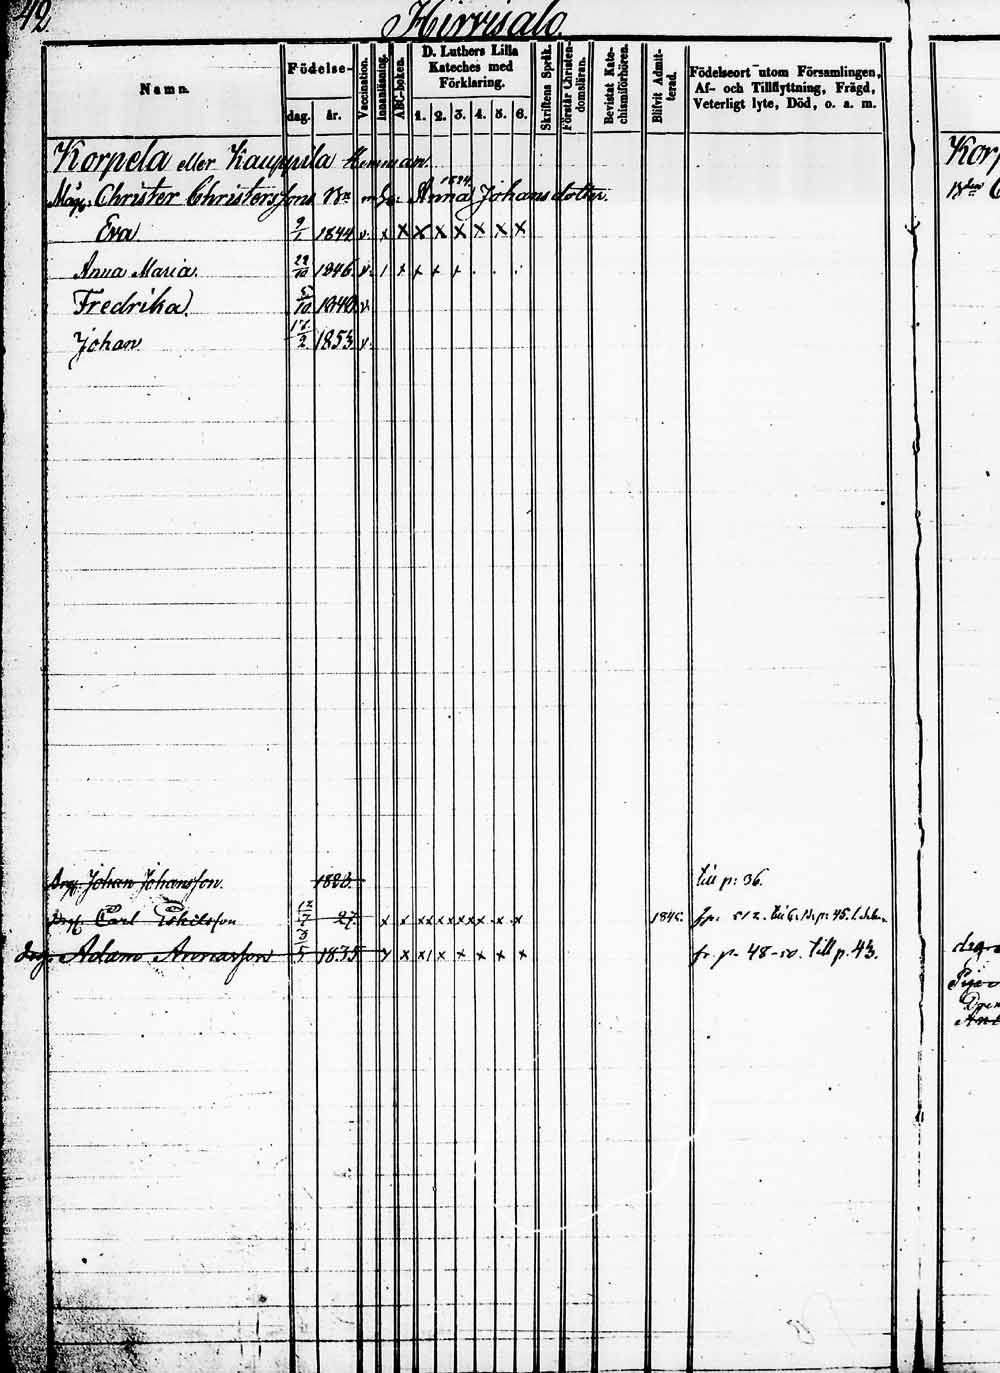 42
Hirvisalo.
Namn.
Födelse-
dag.
år.
Vaccination.
Innanläsning.
ABC-boken.
D. Luthers Lilla Kateches med Förklaring.
1. 2. 3. 4. 5. 6.
Skriftens Språk.
Förstår Christendomsläran.
Bevistat Katechismiförhören.
Blifvit Admitterad.
Födelseort utom Församlingen, Af- och Tillflyttning, Frägd, Veterligt lyte, Död, o. a. m.
Korpela eller Kauppila Hemman
Christer Christerssons Anna Johansdotter.
1824
Eva 9/1 1844 v. x x x x x x x x
Anna Maria. 22/10 1846 v. / x x x x
Fredrika. 5/10 v.
Johan 17/2 1853 v.
Drg. Johan Johansson. till p: 36.
Drg. Carl Eskilsson 12/7 27. x x xx xx xx x x x 1845. fr. 512.
drg. Adam Annasson 3/5 1835 x x x x x x x x fr. p. 48-50. till p. 43.
Korp